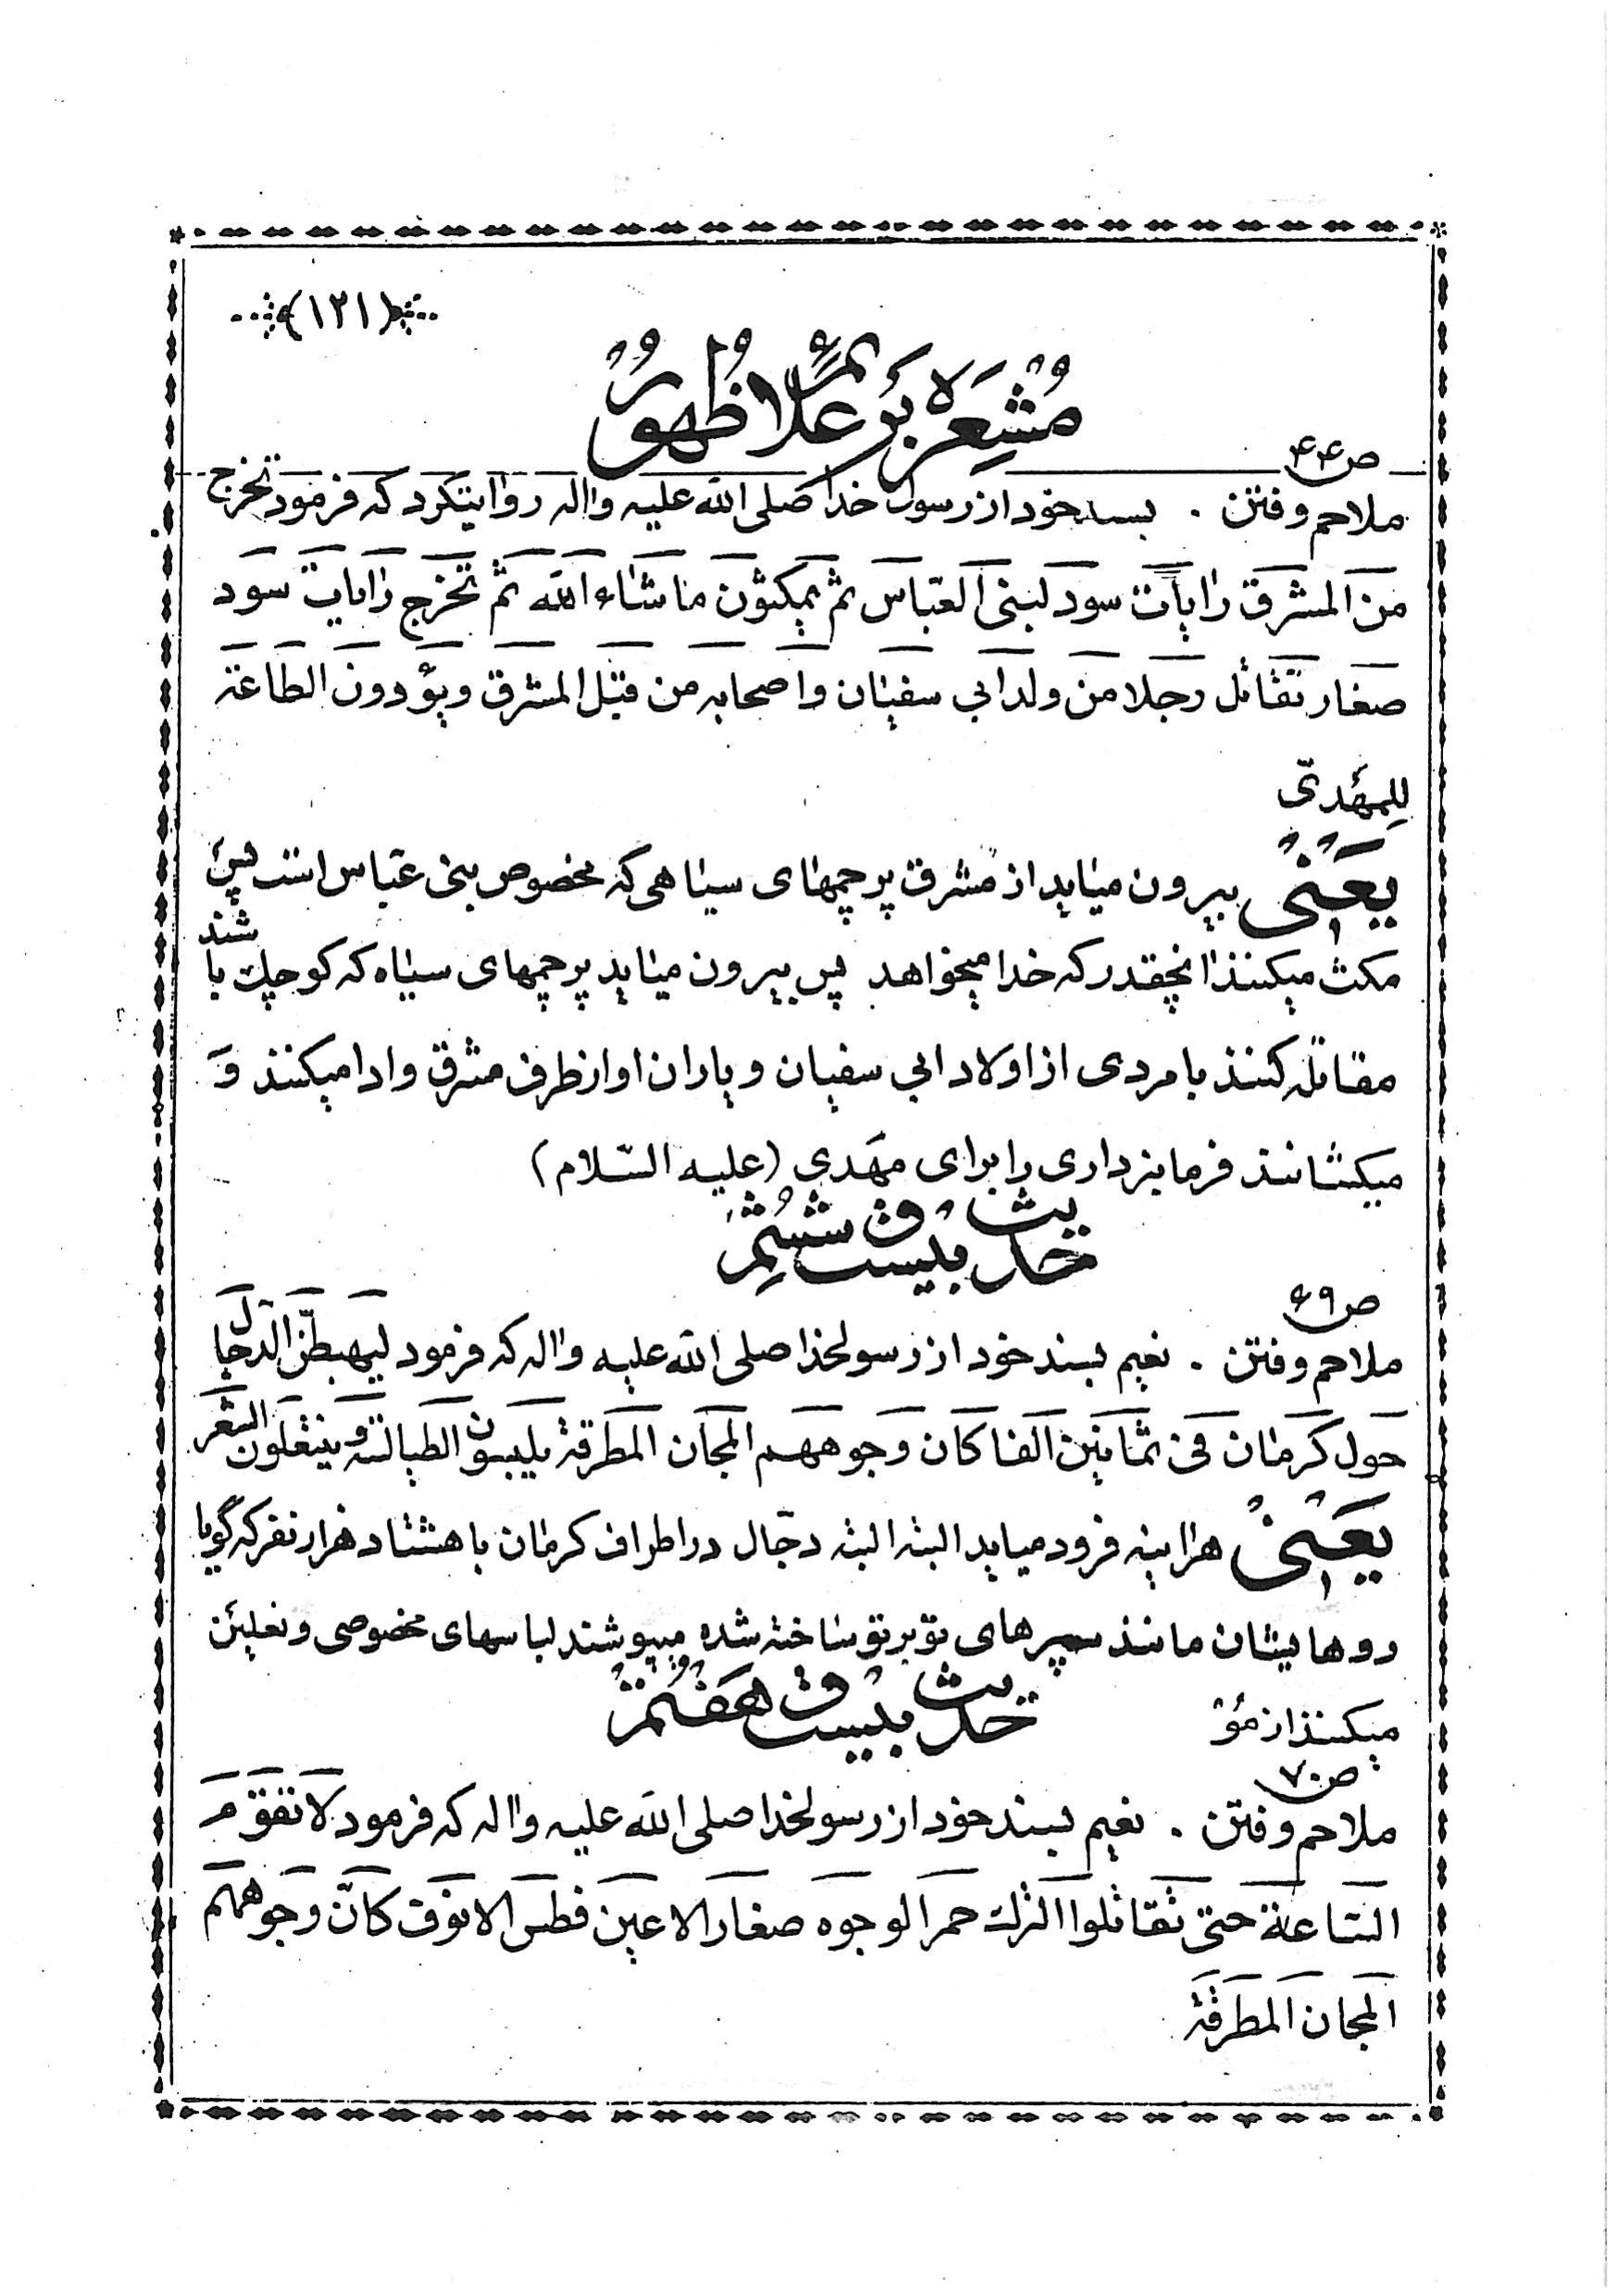 (۱۲۱)
مشعره بر علائم ظهور
ص۴۴
ملاحم و فتن . بسند خود از رسول خدا صلی الله علیه و اله روایتکرد که فرمود تخرج
من المشرق رایات سود لبنی العباس ثم یمکثون ما شاء الله ثم تخرج رایات سود
صغار تقاتل رجلا من ولد ابی سفیان و اصحابه من قبل المشرق و یؤدون الطاعة
للمهدی
یعنی بیرون میاید از مشرق پرچمهای سیاهی که مخصوص بنی عباس است پس
مکث میکنند انچقدر که خدا میخواهد پس بیرون میاید پرچمهای سیاه که کوچک باشند
مقاتله کنند با مردی از اولاد ابی سفیان و یاران او از طرف مشرق و ادا میکنند و
میکشانند فرمانبرداری را برای مهدی (علیه السّلام)
حدیث بیست و ششم
ص۶۹
ملاحم و فتن . نعیم بسند خود از رسولخدا صلی الله علیه و اله که فرمود لیهبطنّ الدجال
حول کرمان فی ثمانین الفا کان وجوههم المجان المطرقة یلبسون الطیالسة و ینتعلون الشعر
یعنی هراینه فرود میاید البته البته دجّال در اطراف کرمان با هشتاد هزار نفر که گویا
روهایشان مانند سپرهای تو بر تو ساخته شده میپوشند لباسهای مخصوصی و نعلین
میکنند از مو
حدیث بیست و هفتم
ص۷۰
ملاحم و فتن . نعیم بسند خود از رسولخدا صلی الله علیه و اله که فرمود لا تقوم
الساعة حتی تقاتلوا الترک حمر الوجوه صغار الاعین فطس الانوف کانّ وجوههم
المجان المطرقة